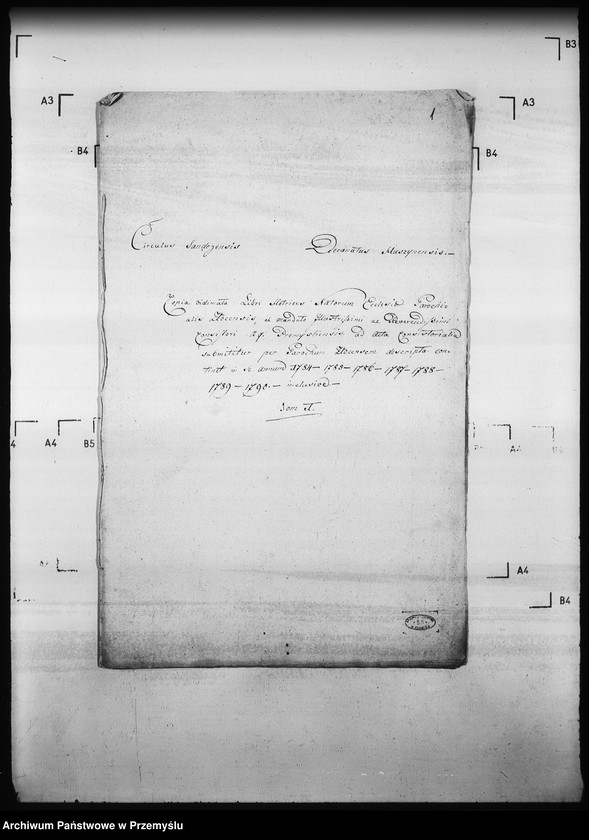 B3
A3
A3
1
B4
B4
Circulus Sandezensis Decanatus Muszynensis.—
Copia vidimata Libri Metrices Natorum Ecclesiæ Parochi
alis ex mandato Illustrissimi ac Reverendissimi
Consistori Premysliensis ad Acta Consistorialia
submittitur per Parochum descripta con-
tinet in se annum 1784— 1785— 1786— 1787— 1788—
1789— 1790.— inclusive—
4
A4
B5
A4
B4
Archiwum Państwowe w Przemyślu